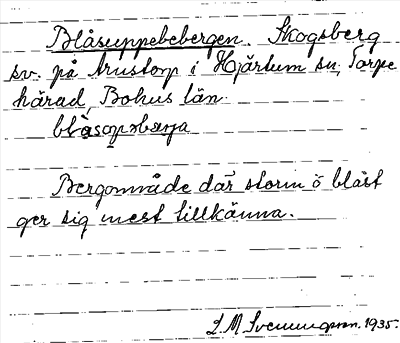 Blåsuppebebergen. Skogsberg
sv. på Anstorp i Hjärtum sn, Torpe
härad, Bohus län.

Bergområde där storm o blåst
ger sig mest tillkänna.
1935.